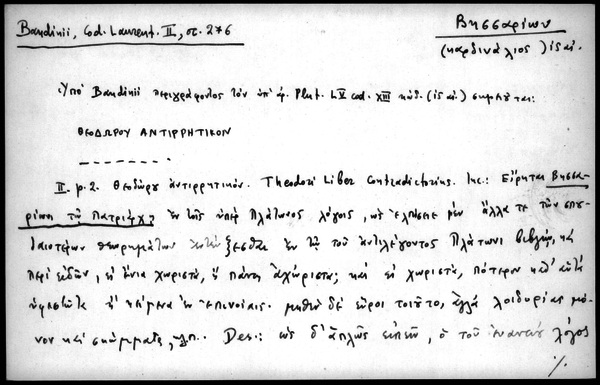 Bandinii, Cod. Laurent. II, σ. 276
Βησσαρίων
(καρδινάλιος) ις αἰ.
Ὑπὸ Bandinii περιγράφοντος τὸν ὑπ' ἀρ. Plut. LV cod. XIII κώδ. (ις αἰ.) σημειοῦται:
ΘΕΟΔΩΡΟΥ ΑΝΤΙΡΡΗΤΙΚΟΝ
II. p. 2. Θεοδώρου ἀντιρρητικόν. Theodori Liber Contradictorius. Inc.: Εἴρηται Βησσα-
ρίωνι τῷ Πατριάρχῃ ἐν τοῖς ὑπὲρ Πλάτωνος λόγοις, ὡς ἐλπίσειε μὲν ἄλλα τε τῶν σπου-
δαιοτέρων θεωρημάτων ἐξεσθαι ἐν τῷ τοῦ ἀντιλέγοντος Πλάτωνι βιβλίῳ, καὶ
περὶ εἰδῶν, εἰ ἔνια χωριστά, ἢ πάντα ἀχώριστα; καὶ εἰ χωριστά, πότερον καθ' αὑτὰ
ὑφεστῶτα ἢ κείμενα ἐν ἐπινοίαις. μηθὲν δὲ εὕροι τοιοῦτο, ἀλλὰ λοιδορίας μό-
νον καὶ σκώμματα, κλπ. Des.: ὡς δ' ἁπλῶς εἰπεῖν, ὁ τοῦ ἐναντίου λόγος
./.